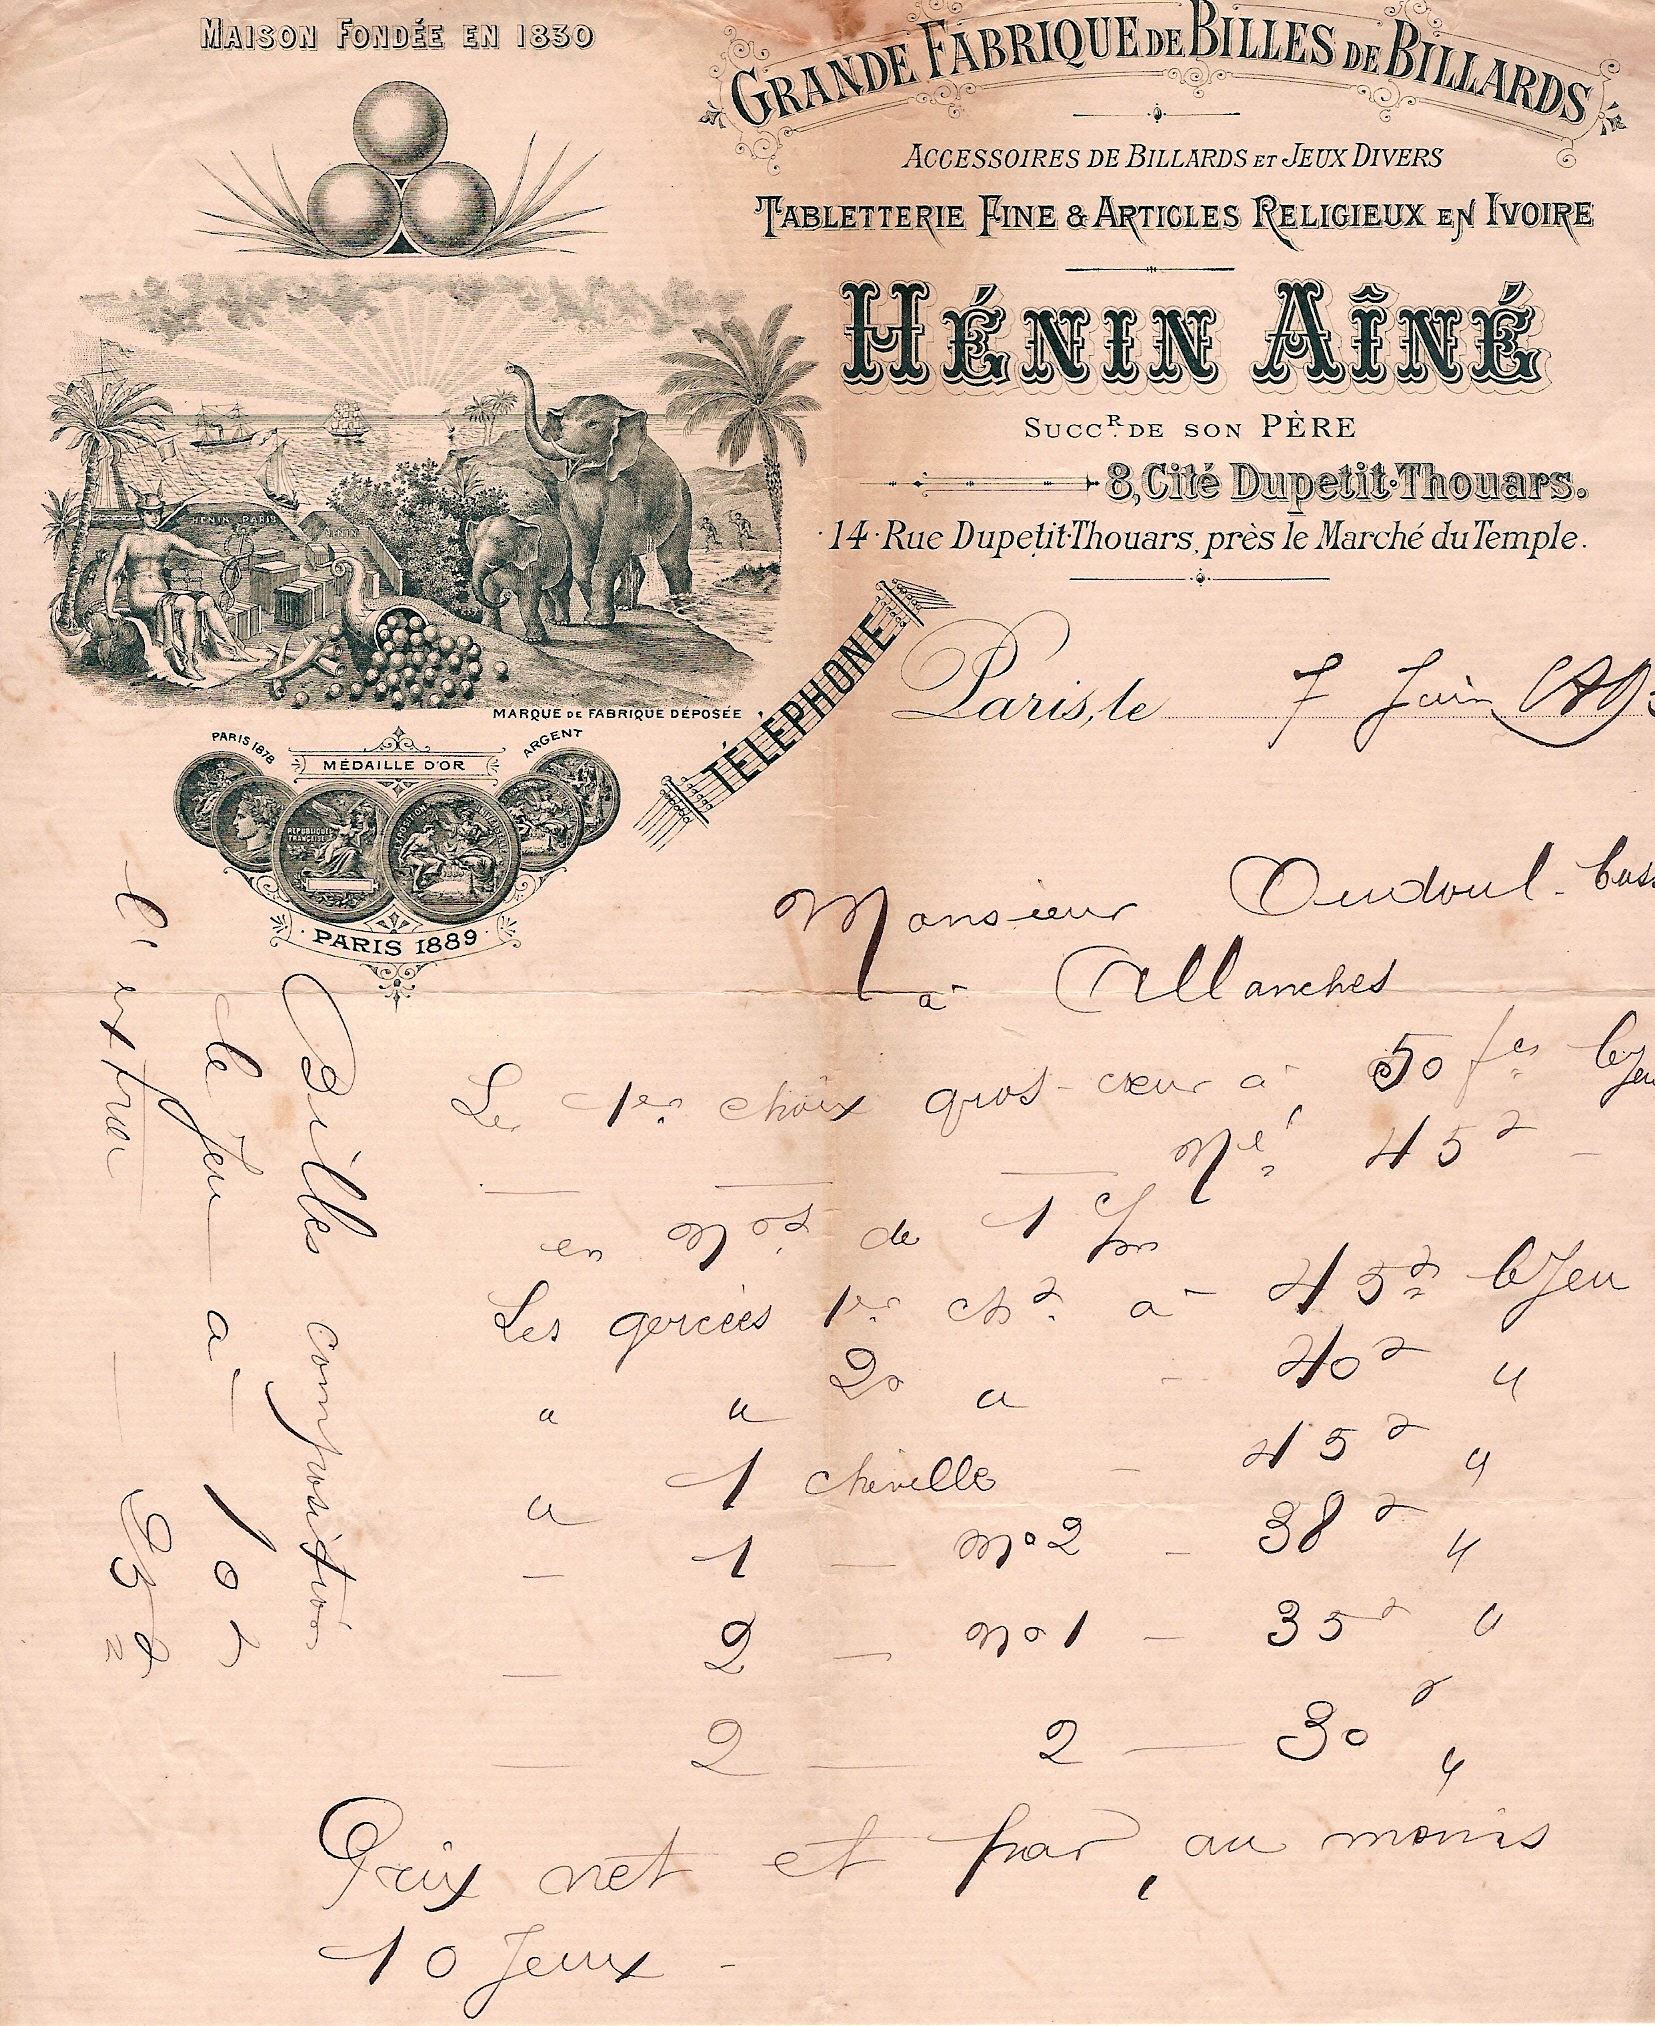 MAISON FONDÉE EN 1830
GRANDE FABRIQUE DE BILLES DE BILLARDS
ACCESSOIRES DE BILLARDS ET JEUX DIVERS
TABLETTERIE FINE & ARTICLES RELIGIEUX EN IVOIRE
HÉNIN AÎNÉ
SUCCR. DE SON PÈRE
8, Cité Dupetit-Thouars.
14 Rue Dupetit-Thouars, près le Marché du Temple.
HENIN PARIS
MARQUE DE FABRIQUE DÉPOSÉE
TÉLÉPHONE
PARIS 1878
MÉDAILLE D'OR
ARGENT
REPUBLIQUE FRANÇAISE
PARIS 1889
Paris, le 7 Juin
Monsieur Oudoul
à Allanches
Le 1er choix gros-cœur à 50 fcs le Jeu
45
en Nos de 1
Les gercées 1er ch à 45 le Jeu
" " 2e " - 40 "
" 1 cheville - 45 "
- 1 - No 2 - 38 "
- 2 - No 1 - 35 "
- 2 - 2 - 30 "
Prix net et par, au moins
10 Jeux -
Billes composition
le Jeu à 10
extra